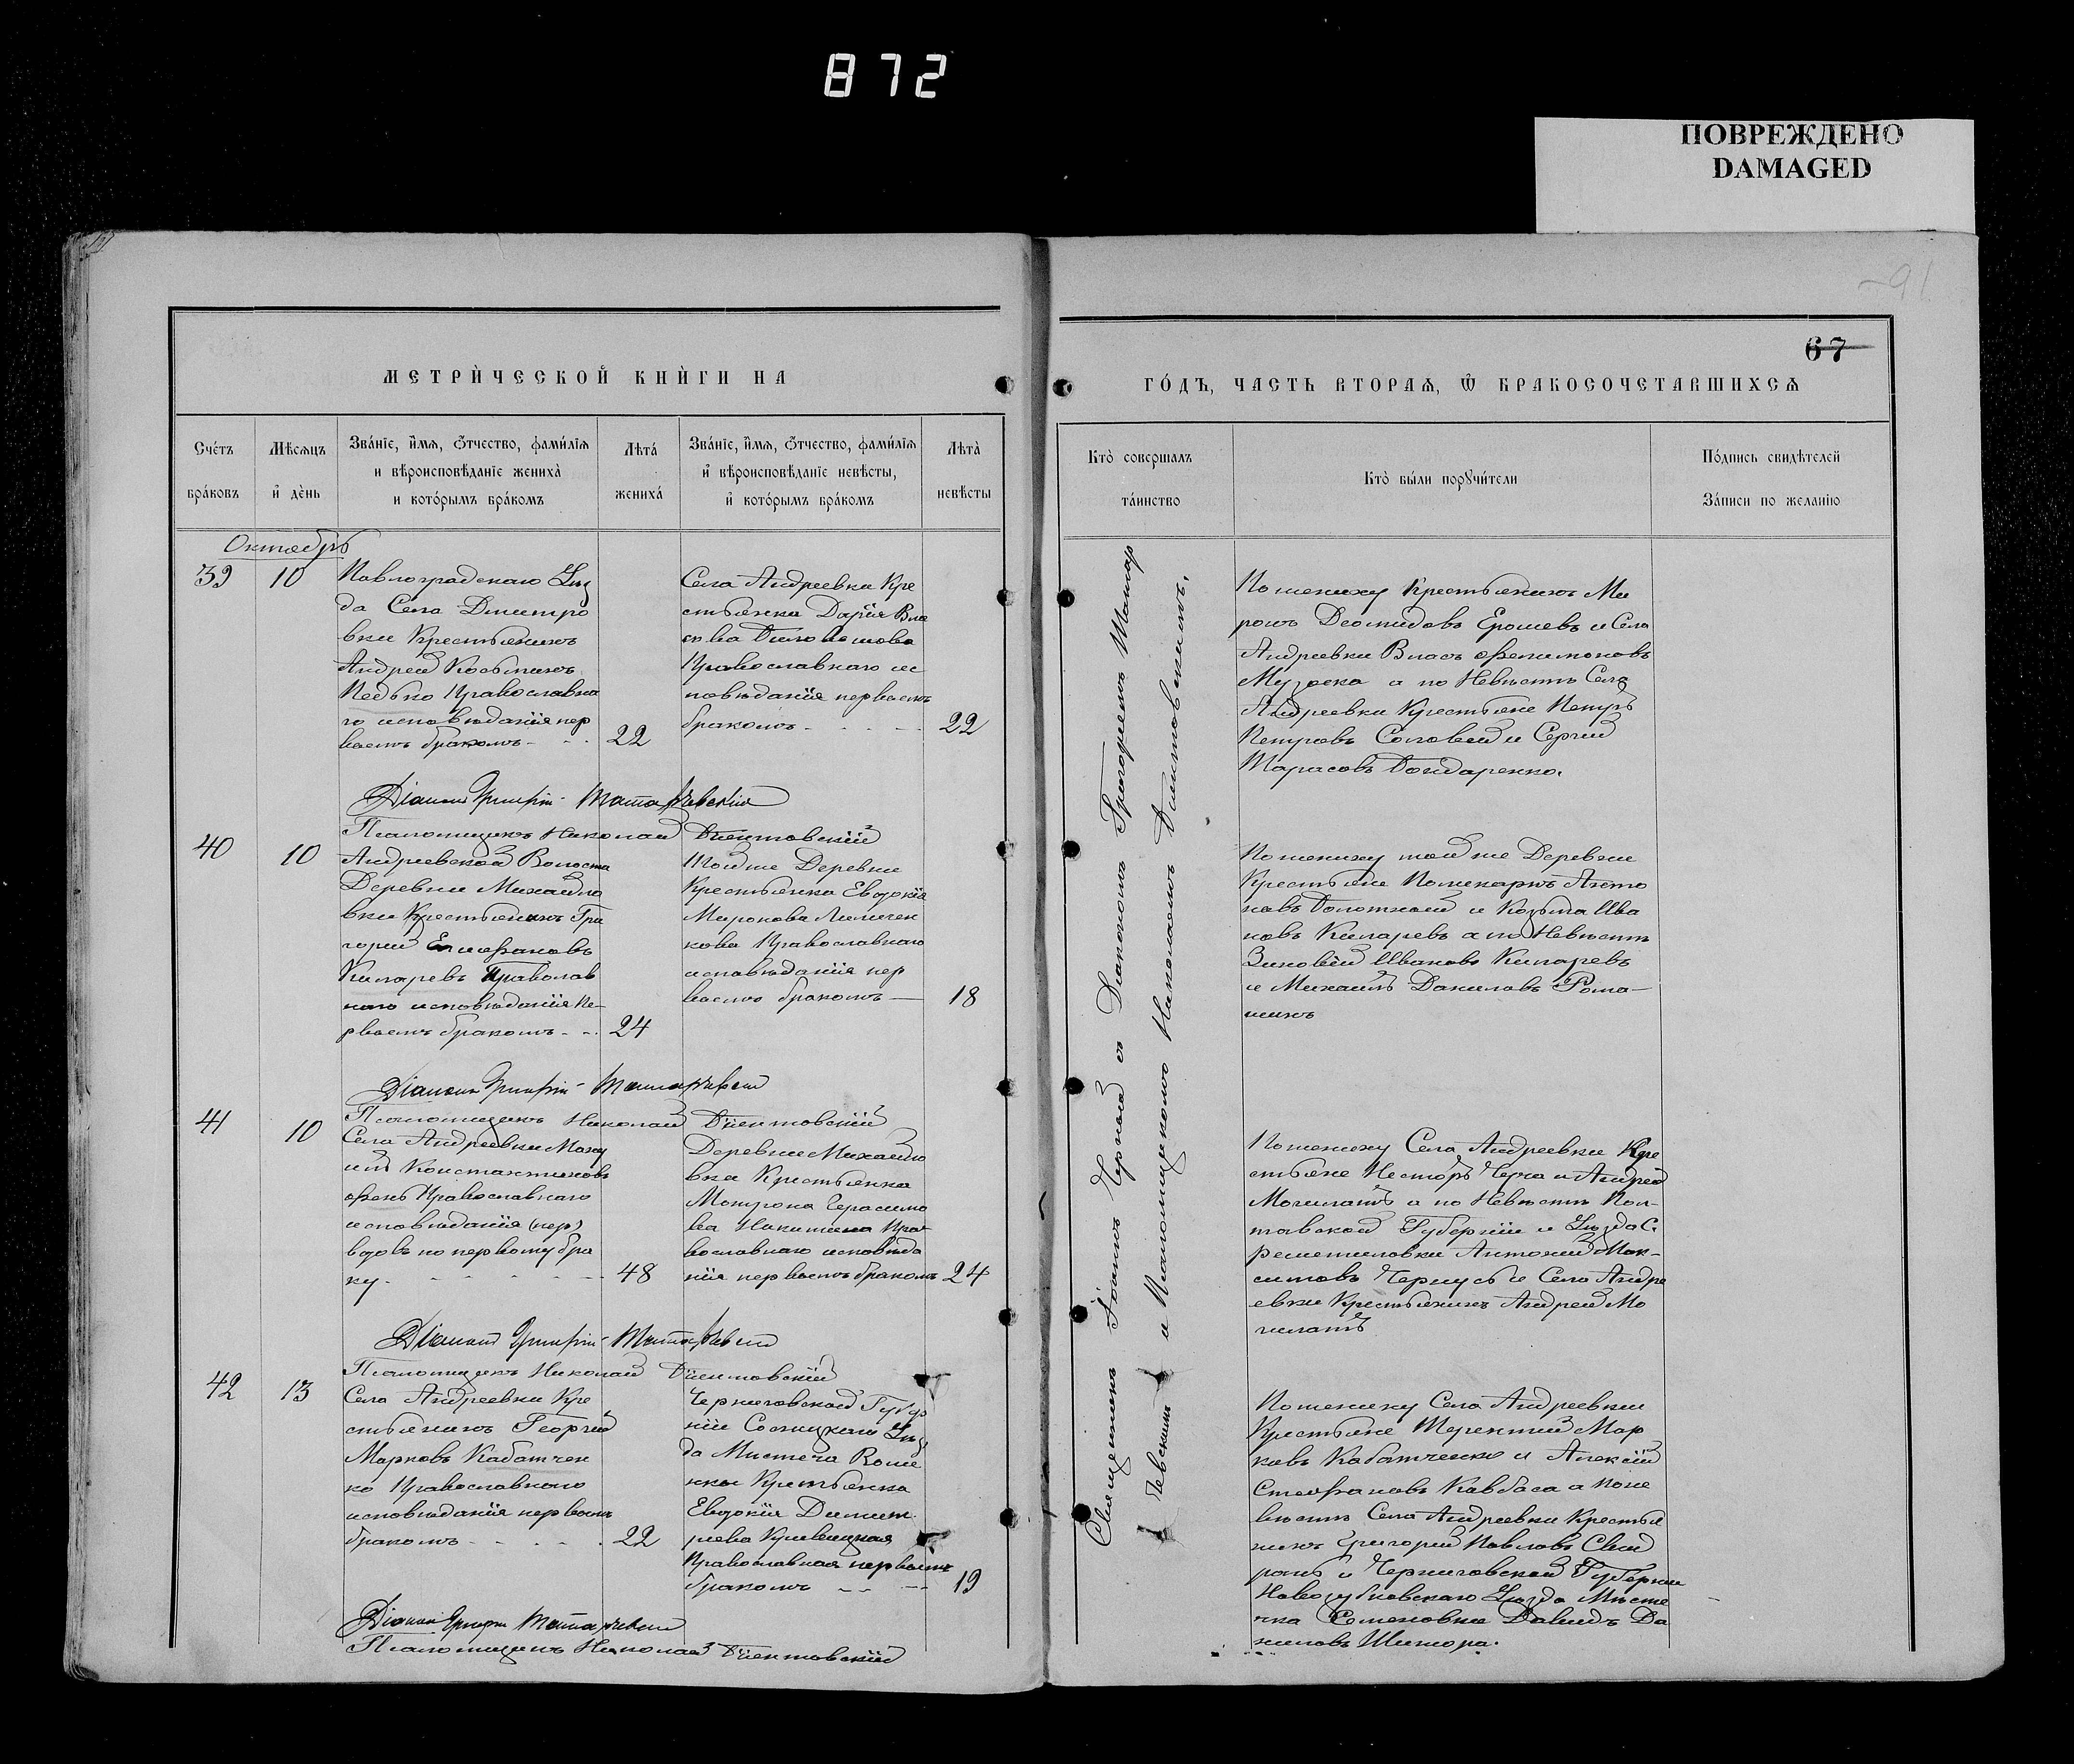 872
ПОВРЕЖДЕНО
DAMAGED
91
67
МЕТРИ́ЧЕСКОЙ КНИ́ГИ НА
ГО́ДЪ, ЧАСТЬ ВТОРАѦ, Ѿ БРАКОСОЧЕТАВШИХСѦ
Сче́тъ бра́ковъ
Мѣсѧцъ и де́нь
Зва́нїе, и́мѧ, ѻ́тчество, фами́лїѧ
и вѣроисповѣ́данїе жениха̀
и кото́рымъ бра́комъ
Лѣта́ жениха́
Зва́нїе, и́мѧ, ѻ́тчество, фами́лїѧ
и вѣроисповѣ́данїе невѣ́сты,
и кото́рымъ бра́комъ
Лѣта̀ невѣ́сты
Кто̀ совершалъ
та́инство
Кто̀ бы́ли порꙋчи́тели
По́дпись свидѣ́телей
За́писи по желанїю
Октябрь
39
10
Павлоградскаго Уѣз
да Села Дмитро
вки Крестьянинъ
Андрей Косьминъ
Педько Православна
го исповѣданія пер
вымъ бракомъ
22
Села Андреевки Кре
стьянка Дарія Вла
сова
Православнаго ис
повѣданія первымъ
бракомъ
22
По жениху Крестьянинъ Ми
ронъ Деомидовъ Ерошевъ и Села
Андреевки Власъ Филимоновъ
а по Невѣстѣ Села
Андреевки Крестьяне Петръ
Петровъ Соловей и Сергій
Тарасовъ Бондаренко.
Діаконъ Григорій
Псаломщикъ Николай
40
10
Андреевской Волости
Деревни Михайло
вки Крестьянинъ Гри
горій Епифановъ
Кипаревъ Праволав
наго исповѣданія пе-
рвымъ бракомъ
24
Той же Деревни
Крестьянка Евдокія
Миронова Линичен
кова Православнаго
исповѣданія пер
вымъ бракомъ
18
По жениху той же Деревни
Крестьяне Поликарпъ Анто
новъ Болотный и Козьма Ива
новъ Кипаревъ а по Невѣстѣ
Зиновій Ивановъ Кипаревъ
и Михаилъ Даниловъ Рома-
Діаконъ Григорій
Псаломщикъ Николай
41
10
Села Андреевки
Константиновъ
Фень Православнаго
исповѣданія (пер)
вдовъ по первому бра
ку
48
Деревни Михайло
вки Крестьянка
Мотрона Герасимо
ва Никитина Пра
вославнаго исповѣда
нія первымъ бракомъ
24
По жениху Села Андреевки Кре
стьяне Несторъ Чуча и Андрей
а по Невѣстѣ Пол-
тавской Губерніи и Уѣзда С.
Решетиловки Антоній Мак-
симовъ Чернусь и Села Андре
евки Крестьянинъ Андрей Мо
Діаконъ Григорій
Псаломщикъ Николай
42
13
Села Андреевки Кре
стьянинъ Георгій
Марковъ Кабатчен
ко Православнаго
исповѣданія первымъ
бракомъ
22
Черниговской Губер
ніи Сосницкаго Уѣз
да Мистеча
Крестьянка
Евдокія Димит
ріева Кривицкая
Православная первымъ
бракомъ
19
По жениху Села Андреевки
Крестьяне Терентій Мар
ковъ Кабатченко и Алексій
Стефановъ Ковбаса а по не
вѣстѣ Села Андреевки Крестья
нинъ Григорій Павловъ Свид
и Черниговской Губерніи
Новозыбковскаго Уѣзда Мѣсте
чка Семеновки Давидъ Да
ниловъ
Діаконъ Григорій
Псаломщикъ Николай
Священникъ Іоаннъ Черный съ Діакономъ Григоріемъ
и Псаломщикомъ Николаемъ